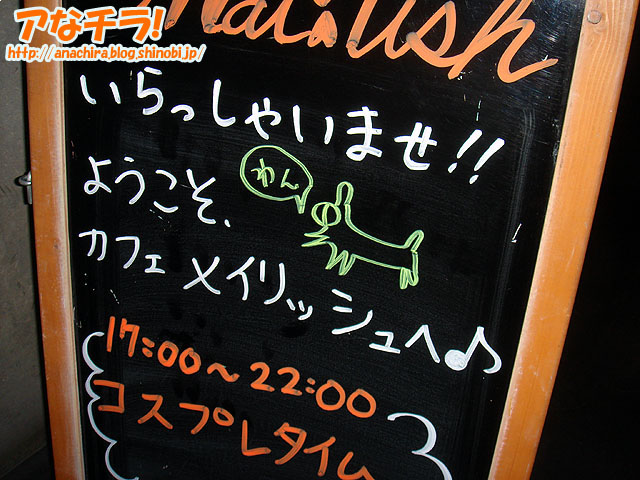 アなチラ!
http://anachira.blog.shinobi.jp/
Mai:lish
いらっしゃいませ!!
わん
ようこそ、
カフェ メイリッシュへ♪
17:00~22:00
コスプレタイム